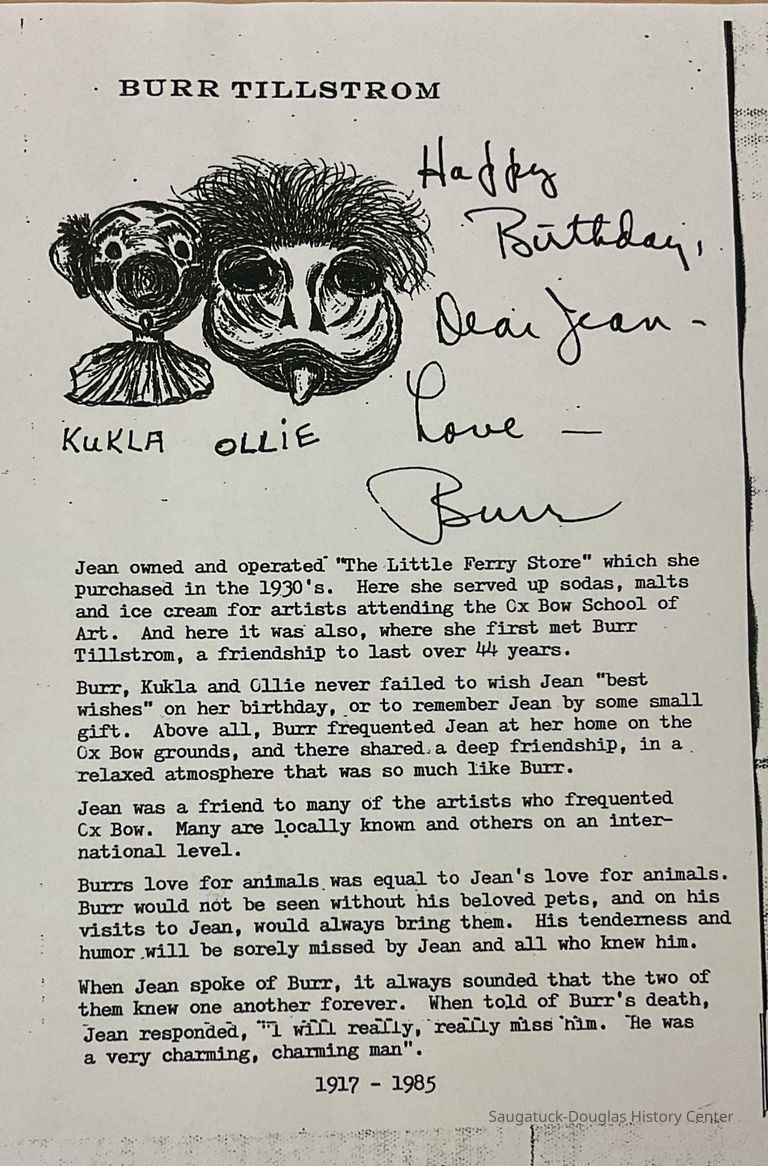 BURR TILLSTROM
Happy
Birthday,
Dear Jean -
Love —
Burr
KUKLA OLLIE
Jean owned and operated "The Little Ferry Store" which she
purchased in the 1930's. Here she served up sodas, malts
and ice cream for artists attending the Ox Bow School of
Art. And here it was also, where she first met Burr
Tillstrom, a friendship to last over 44 years.
Burr, Kukla and Ollie never failed to wish Jean "best
wishes" on her birthday, or to remember Jean by some small
gift. Above all, Burr frequented Jean at her home on the
Ox Bow grounds, and there shared a deep friendship, in a
relaxed atmosphere that was so much like Burr.
Jean was a friend to many of the artists who frequented
Ox Bow. Many are locally known and others on an inter-
national level.
Burrs love for animals was equal to Jean's love for animals.
Burr would not be seen without his beloved pets, and on his
visits to Jean, would always bring them. His tenderness and
humor will be sorely missed by Jean and all who knew him.
When Jean spoke of Burr, it always sounded that the two of
them knew one another forever. When told of Burr's death,
Jean responded, "I will really, really miss him. He was
a very charming, charming man".
1917 - 1985
Saugatuck-Douglas History Center